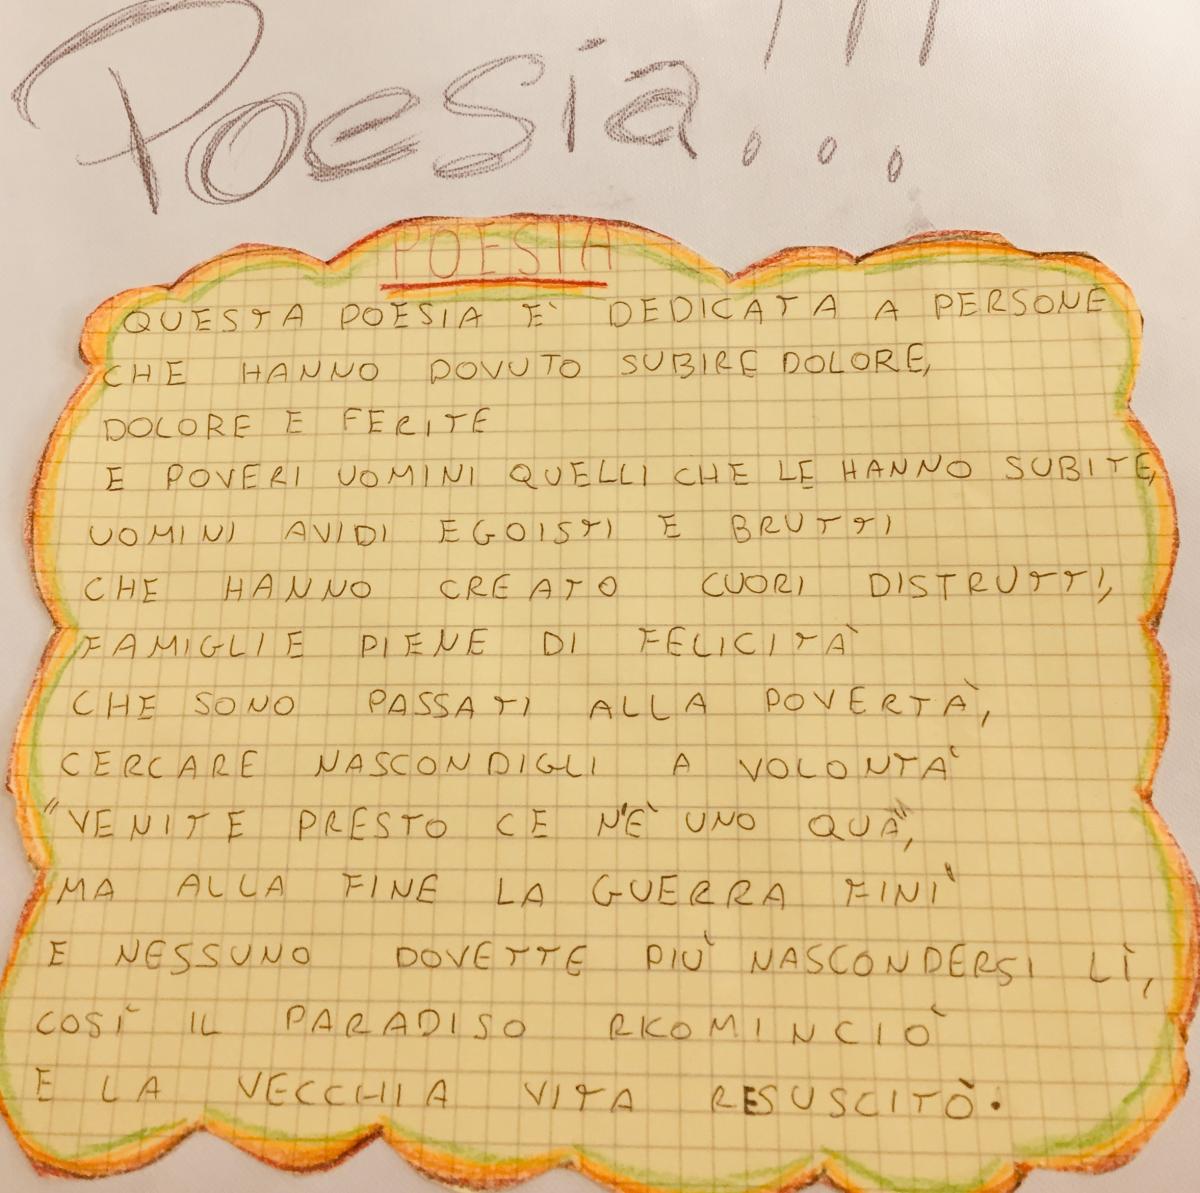 Poesia!!!
POESIA
QUESTA POESIA E' DEDICATA A PERSONE
CHE HANNO DOVUTO SUBIRE DOLORE,
DOLORE E FERITE
E POVERI UOMINI QUELLI CHE LE HANNO SUBITE,
UOMINI AVIDI EGOISTI E BRUTTI
CHE HANNO CREATO CUORI DISTRUTTI,
FAMIGLIE PIENE DI FELICITÀ
CHE SONO PASSATI ALLA POVERTÀ,
CERCARE NASCONDIGLI A VOLONTÀ
"VENITE PRESTO CE N'È UNO QUÀ",
MA ALLA FINE LA GUERRA FINÌ
E NESSUNO DOVETTE PIÙ NASCONDERSI LÌ,
COSÌ IL PARADISO RKOMINCIÒ
E LA VECCHIA VITA RESUSCITÒ.